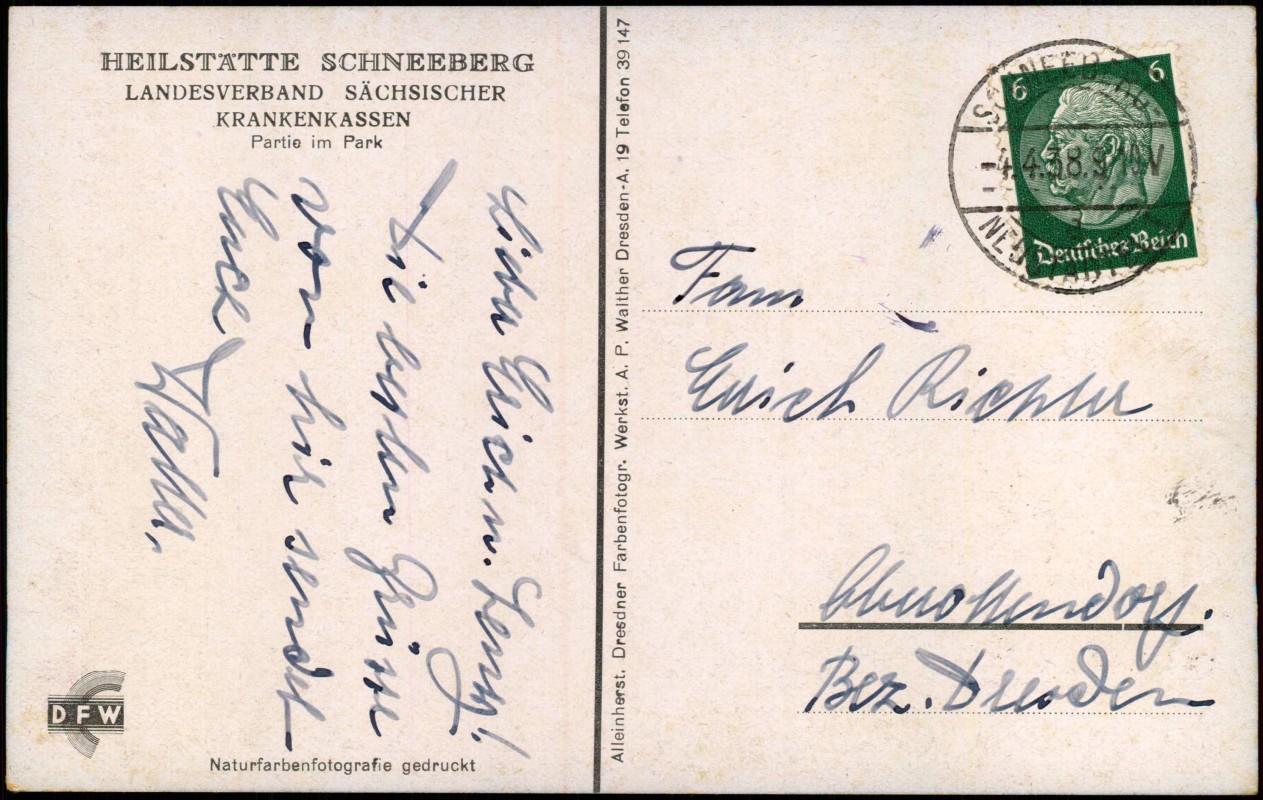 HEILSTÄTTE SCHNEEBERG
LANDESVERBAND SÄCHSISCHER
KRANKENKASSEN
Partie im Park
Erich u.
Die besten Grüsse
von hier sendet
Euch
Walter.
DFW
Naturfarbenfotografie gedruckt
Alleinherst. Dresdner Farbenfotogr. Werkst. A. P. Walther Dresden-A. 19 Telefon 39147
6 6
Deutsches Reich
SCHNEEBERG
-4.4.38.9-10V
NEUSTÄDTEL
Fam
Erich Richter
Oberottendorf.
Bez. Dresden